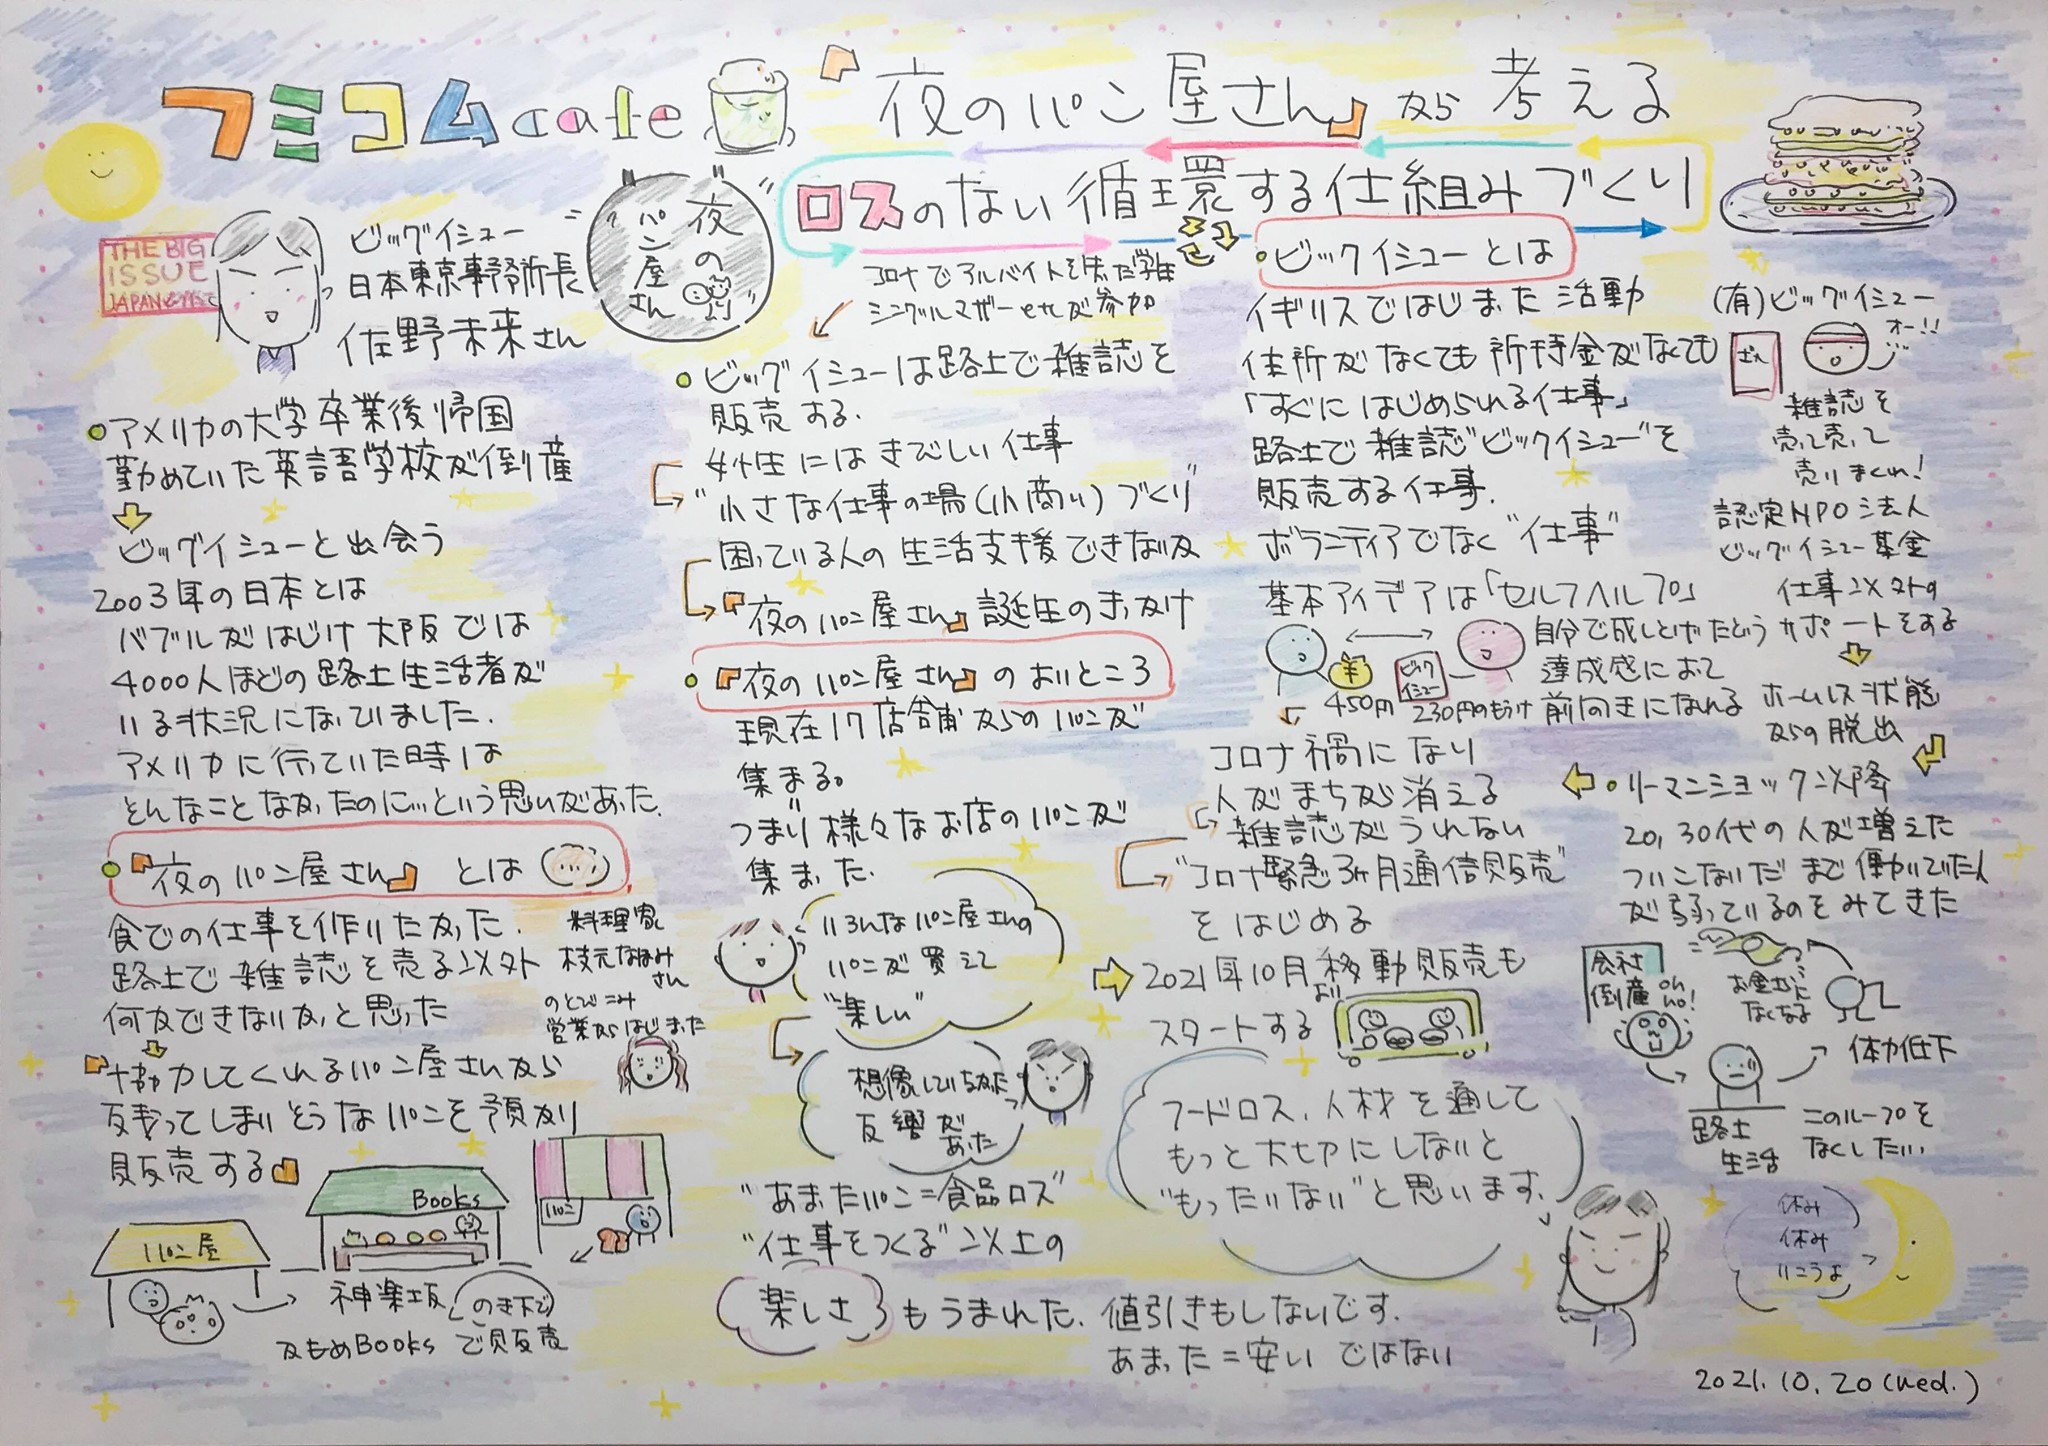 フミコムcafe
『夜のパン屋さん』から考える
ロスのない循環する仕組みづくり
THE BIG
ISSUE
JAPAN
ビッグイシュー
日本東京事務所長
佐野未来さん
夜の
パン屋
さん
アメリカの大学卒業後帰国
勤めていた英語学校が倒産
ビッグイシューと出会う
2003年の日本とは
バブルがはじけ大阪では
4000人ほどの路上生活者が
いる状況になっていました.
アメリカに行っていた時は
そんなことなかったのに…という思いがあった.
『夜のパン屋さん』とは
食での仕事を作りたかった.
路上で雑誌を売る以外
何かできないか,と思った
料理家
枝元なほみ
さん
のとびこみ
営業からはじまった
『協力してくれるパン屋さんから
残ってしまいそうなパンを預かり
販売する』
パン屋
Books
パン
神楽坂
かもめBooks
のき下で
で販売
コロナでアルバイトを失った学生
シングルマザーetcが参加
ビッグイシューは路上で雑誌を
販売する.
女性にはきびしい仕事
"小さな仕事の場(小商い)づくり"
困っている人の生活支援できないか
『夜のパン屋さん』誕生のきっかけ
『夜のパン屋さん』のおいところ
現在17店舗からのパンが
集まる。
つまり様々なお店のパンが
集まった.
いろんなパン屋さんの
パンが買えて
"楽しい"
想像していなかった
反響が
あった
"あまったパン=食品ロス"
"仕事をつくる"以上の
楽しさ
もうまれた.値引きもしないです.
あまった=安いではない
ビックイシューとは
イギリスではじまった活動
住所がなくても所持金がなくても
「すぐにはじめられる仕事」
路上で雑誌"ビックイシュー"を
販売する仕事.
ボランティアでなく"仕事"
基本アイデアは「セルフヘルプ」
¥
450円
ビック
イシュー
230円のもうけ
自分で成しとげたどう
達成感によって
前向きになれる
コロナ禍になり
人がまちから消える
雑誌がうれない
"コロナ緊急3ヶ月通信販売"
をはじめる
2021年10月より移動販売も
スタートする
フードロス,人材を通して
もっと大切にしないと
"もったいない"と思います.
(有)ビッグイシュー
オー!!
雑誌を
売って売って
売りまくれ!
認定NPO法人
ビッグイシュー基金
仕事以外の
サポートをする
ホームレス状態
からの脱出
リーマンショック以降
20,30代の人が増えた
ついこないだまで働いていた人
が弱っているのをみてきた
会社
倒産
oh
no!
お金がなくなる
体力低下
路上
生活
このループを
なくしたい..
休み
休み
いこうよ
2021.10.20(wed.)